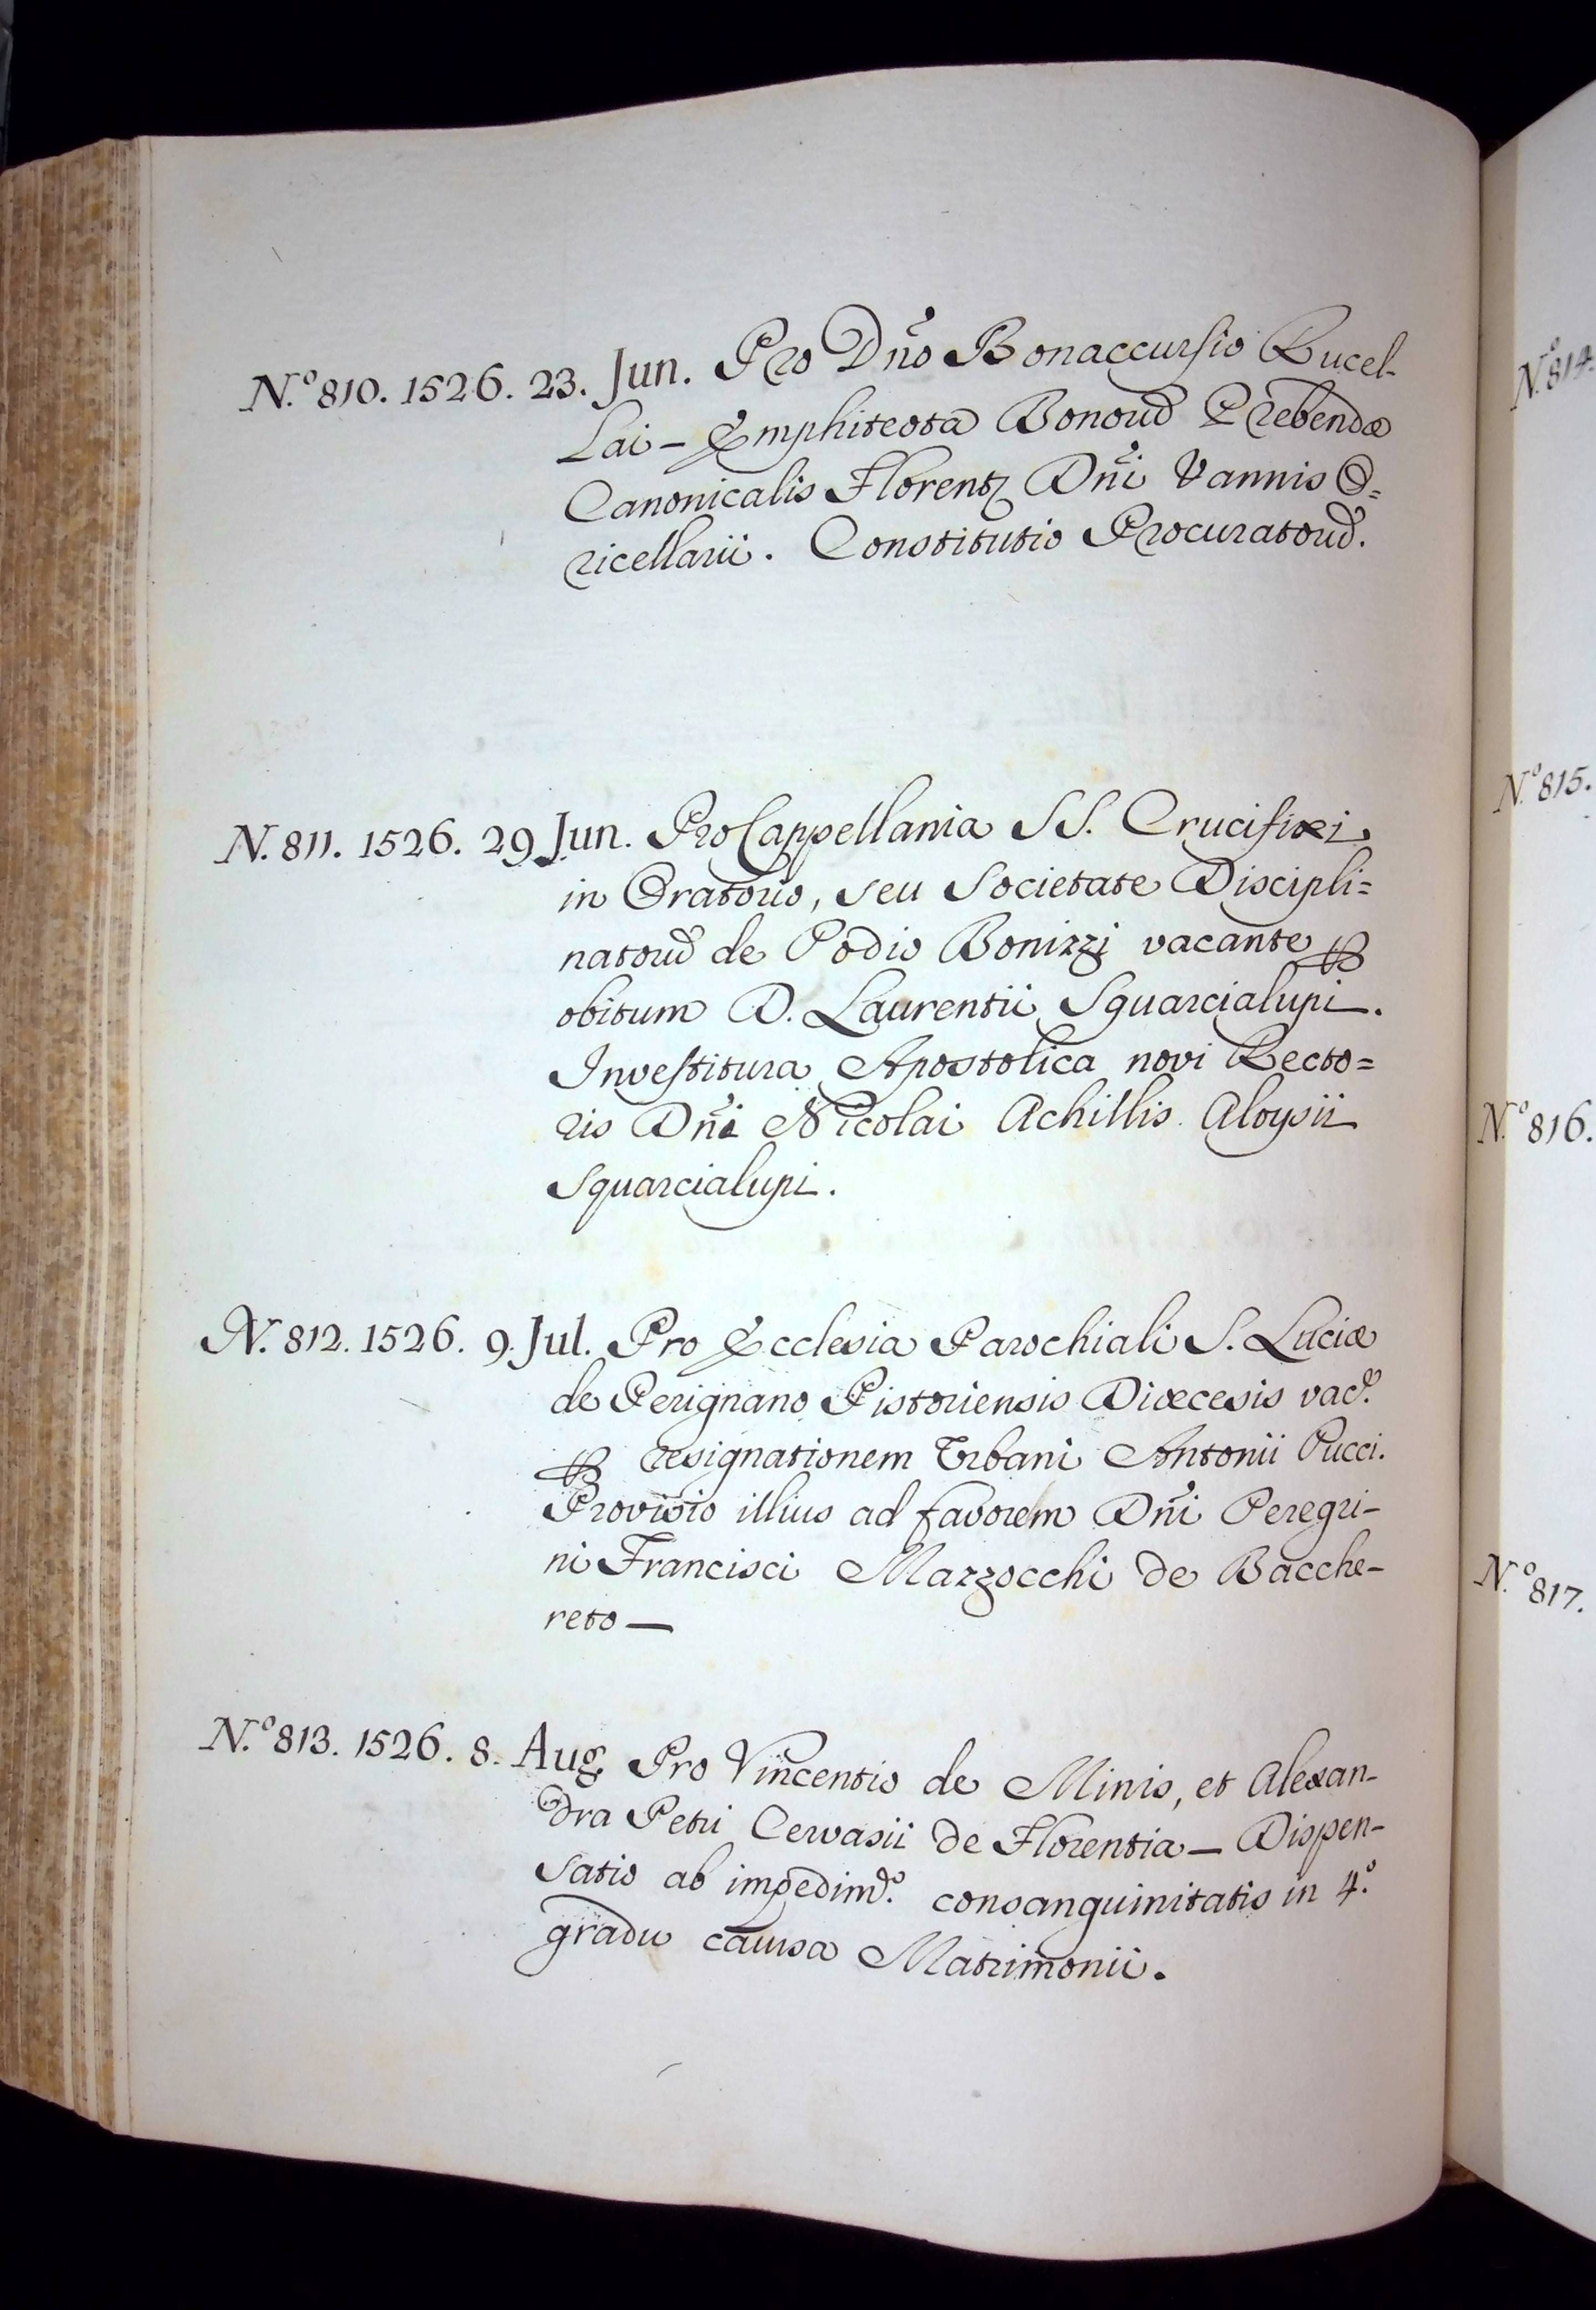 N.º 810. 1526. 23. Jun. Pro Dño Bonaccursio Rucel-
lai – Emphiteota Bonoꝝ Prebendæ
Canonicalis Florentꝫ Dñi Vannis O=
ricellarii. Constitutio Procuratoꝝ.
N. 811. 1526. 29 Jun. Pro Cappellania SS. Crucifixi
in Oratorio, seu Societate Discipli=
natoꝝ de Podio Bonizzi vacante ꝑ
obitum D. Laurentii Squarcialupi.
Investitura Apostolica novi Recto=
ris Dñi Nicolai Achillis Aloysii
Squarcialupi.
N. 812. 1526. 9. Jul. Pro Ecclesia Parochiali S. Luciæ
de Perignano Pistoriensis Diœcesis vac.
ꝑ resignationem Urbani Antonii Pucci.
Provisio illius ad favorem Dñi Peregri-
ni Francisci Mazzocchi de Bacche-
reto —
N.º 813. 1526. 8. Aug. Pro Vincentio de Minis, et Alexan-
dra Petri Cervasii de Florentia — Dispen-
satio ab impedim.º consanguinitatis in 4.º
gradu causa Matrimonii.
N.º 814.
N.º 815.
N.º 816.
N.º 817.